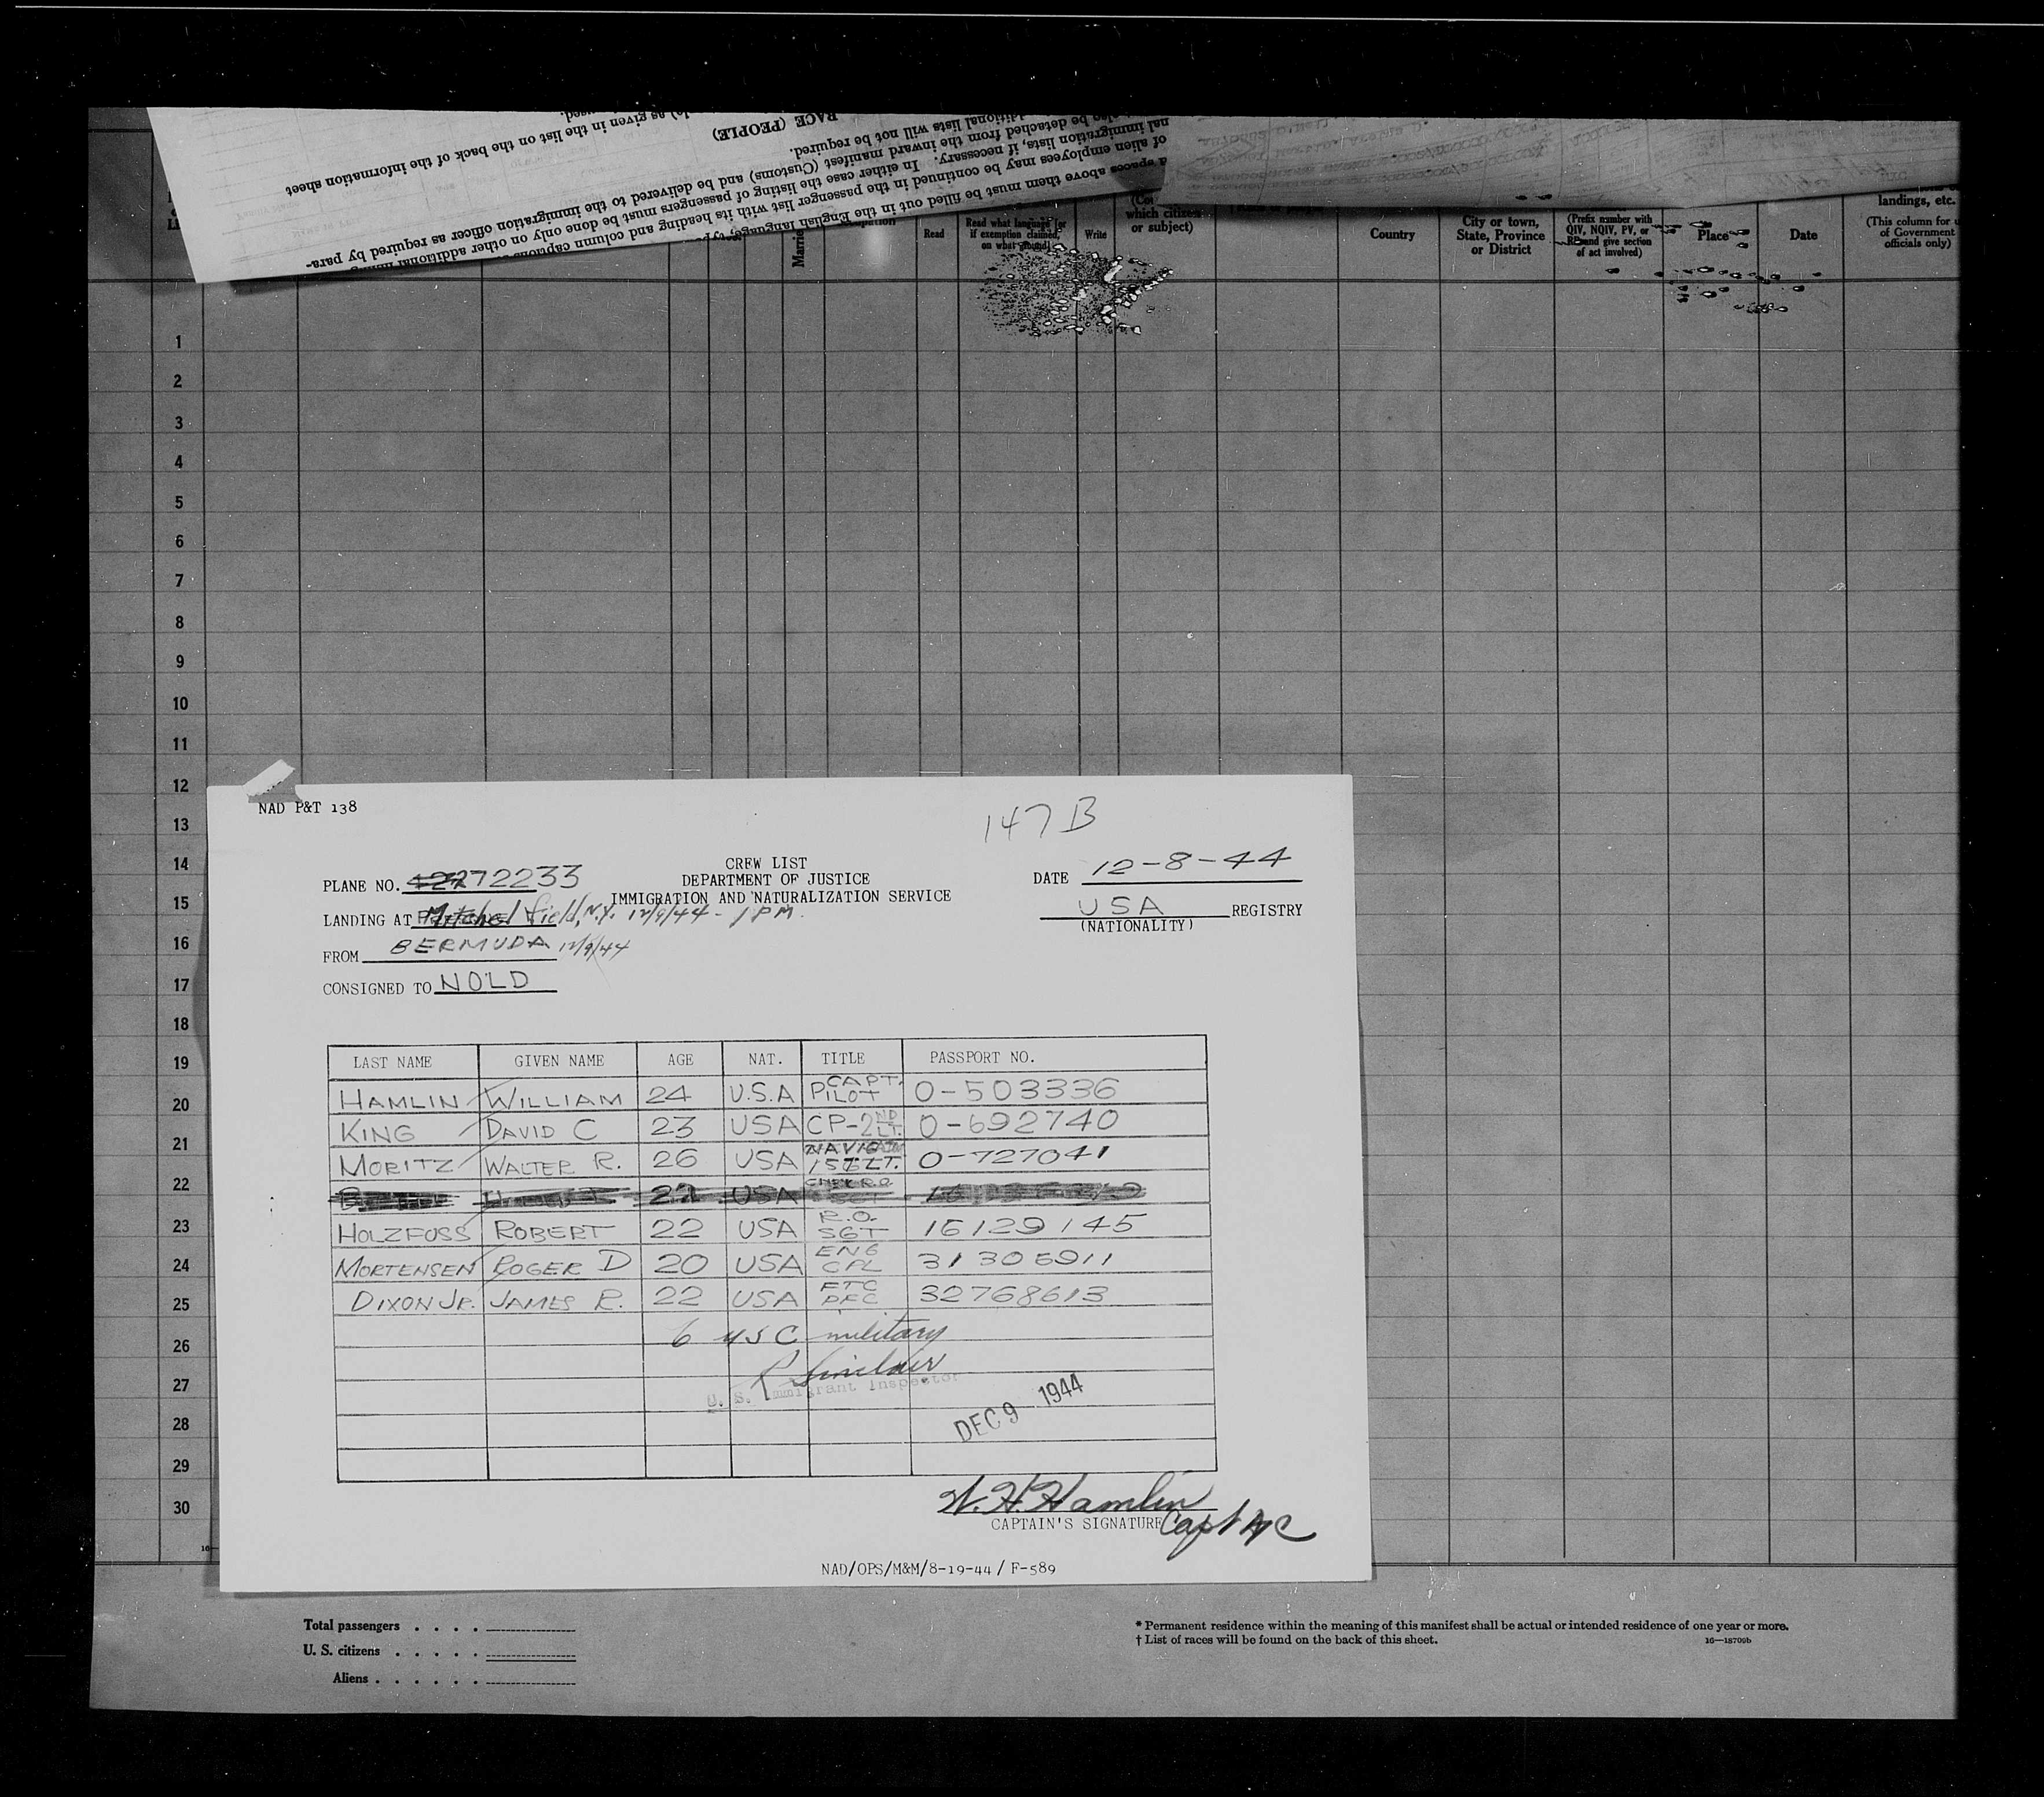 as given in the list on the back of the information sheet
RACE (PEOPLE)
additional lists will not be required.
be detached from the inward manifest (Customs) and be delivered to the immigration officer as required by para-
nal immigration lists, if necessary. In either case the listing of passengers must be done only on other additional
of alien employees may be continued in the passenger list with its heading and column captions
spaces above them must be filled out in the English language,
Read
Read what language for
if exemption claimed,
on what ground
Write
which citizen
or subject)
Country
City or town,
State, Province
or District
(Prefix number with
QIV, NQIV, PV, or
and give section
of act involved)
Place
Date
landings, etc.
(This column for u
of Government
officials only)
1
2
3
4
5
6
7
8
9
10
11
12
13
14
15
16
17
18
19
20
21
22
23
24
25
26
27
28
29
30
NAD P&T 138
147 B
CREW LIST
DEPARTMENT OF JUSTICE
IMMIGRATION AND NATURALIZATION SERVICE
PLANE NO. 272233
DATE 12-8-44
LANDING AT Mitchel Field, N.Y. 12/9/44 - 1 PM.
USA REGISTRY
(NATIONALITY)
FROM BERMUDA 12/9/44
CONSIGNED TO NOLD
LAST NAME GIVEN NAME AGE NAT. TITLE PASSPORT NO.
HAMLIN WILLIAM 24 U.S.A CAPT. PILOT O-503336
KING DAVID C 23 USA CP-2ND LT. O-692740
MORITZ WALTER R. 26 USA 1ST LT. O-727041
USA
HOLZFOSS ROBERT 22 USA R.O. SGT 16129145
MORTENSEN ROGER D 20 USA ENG CPL 31305911
DIXON JR. JAMES R. 22 USA FTC PFC 32768613
6 USC military
R Sinclair
U. S. Immigrant Inspector
DEC 9 1944
W. H. Hamlin
CAPTAIN'S SIGNATURE Capt AC
NAD/OPS/M&M/8-19-44 / F-589
Total passengers
U. S. citizens
Aliens
* Permanent residence within the meaning of this manifest shall be actual or intended residence of one year or more.
† List of races will be found on the back of this sheet.
16—18709b